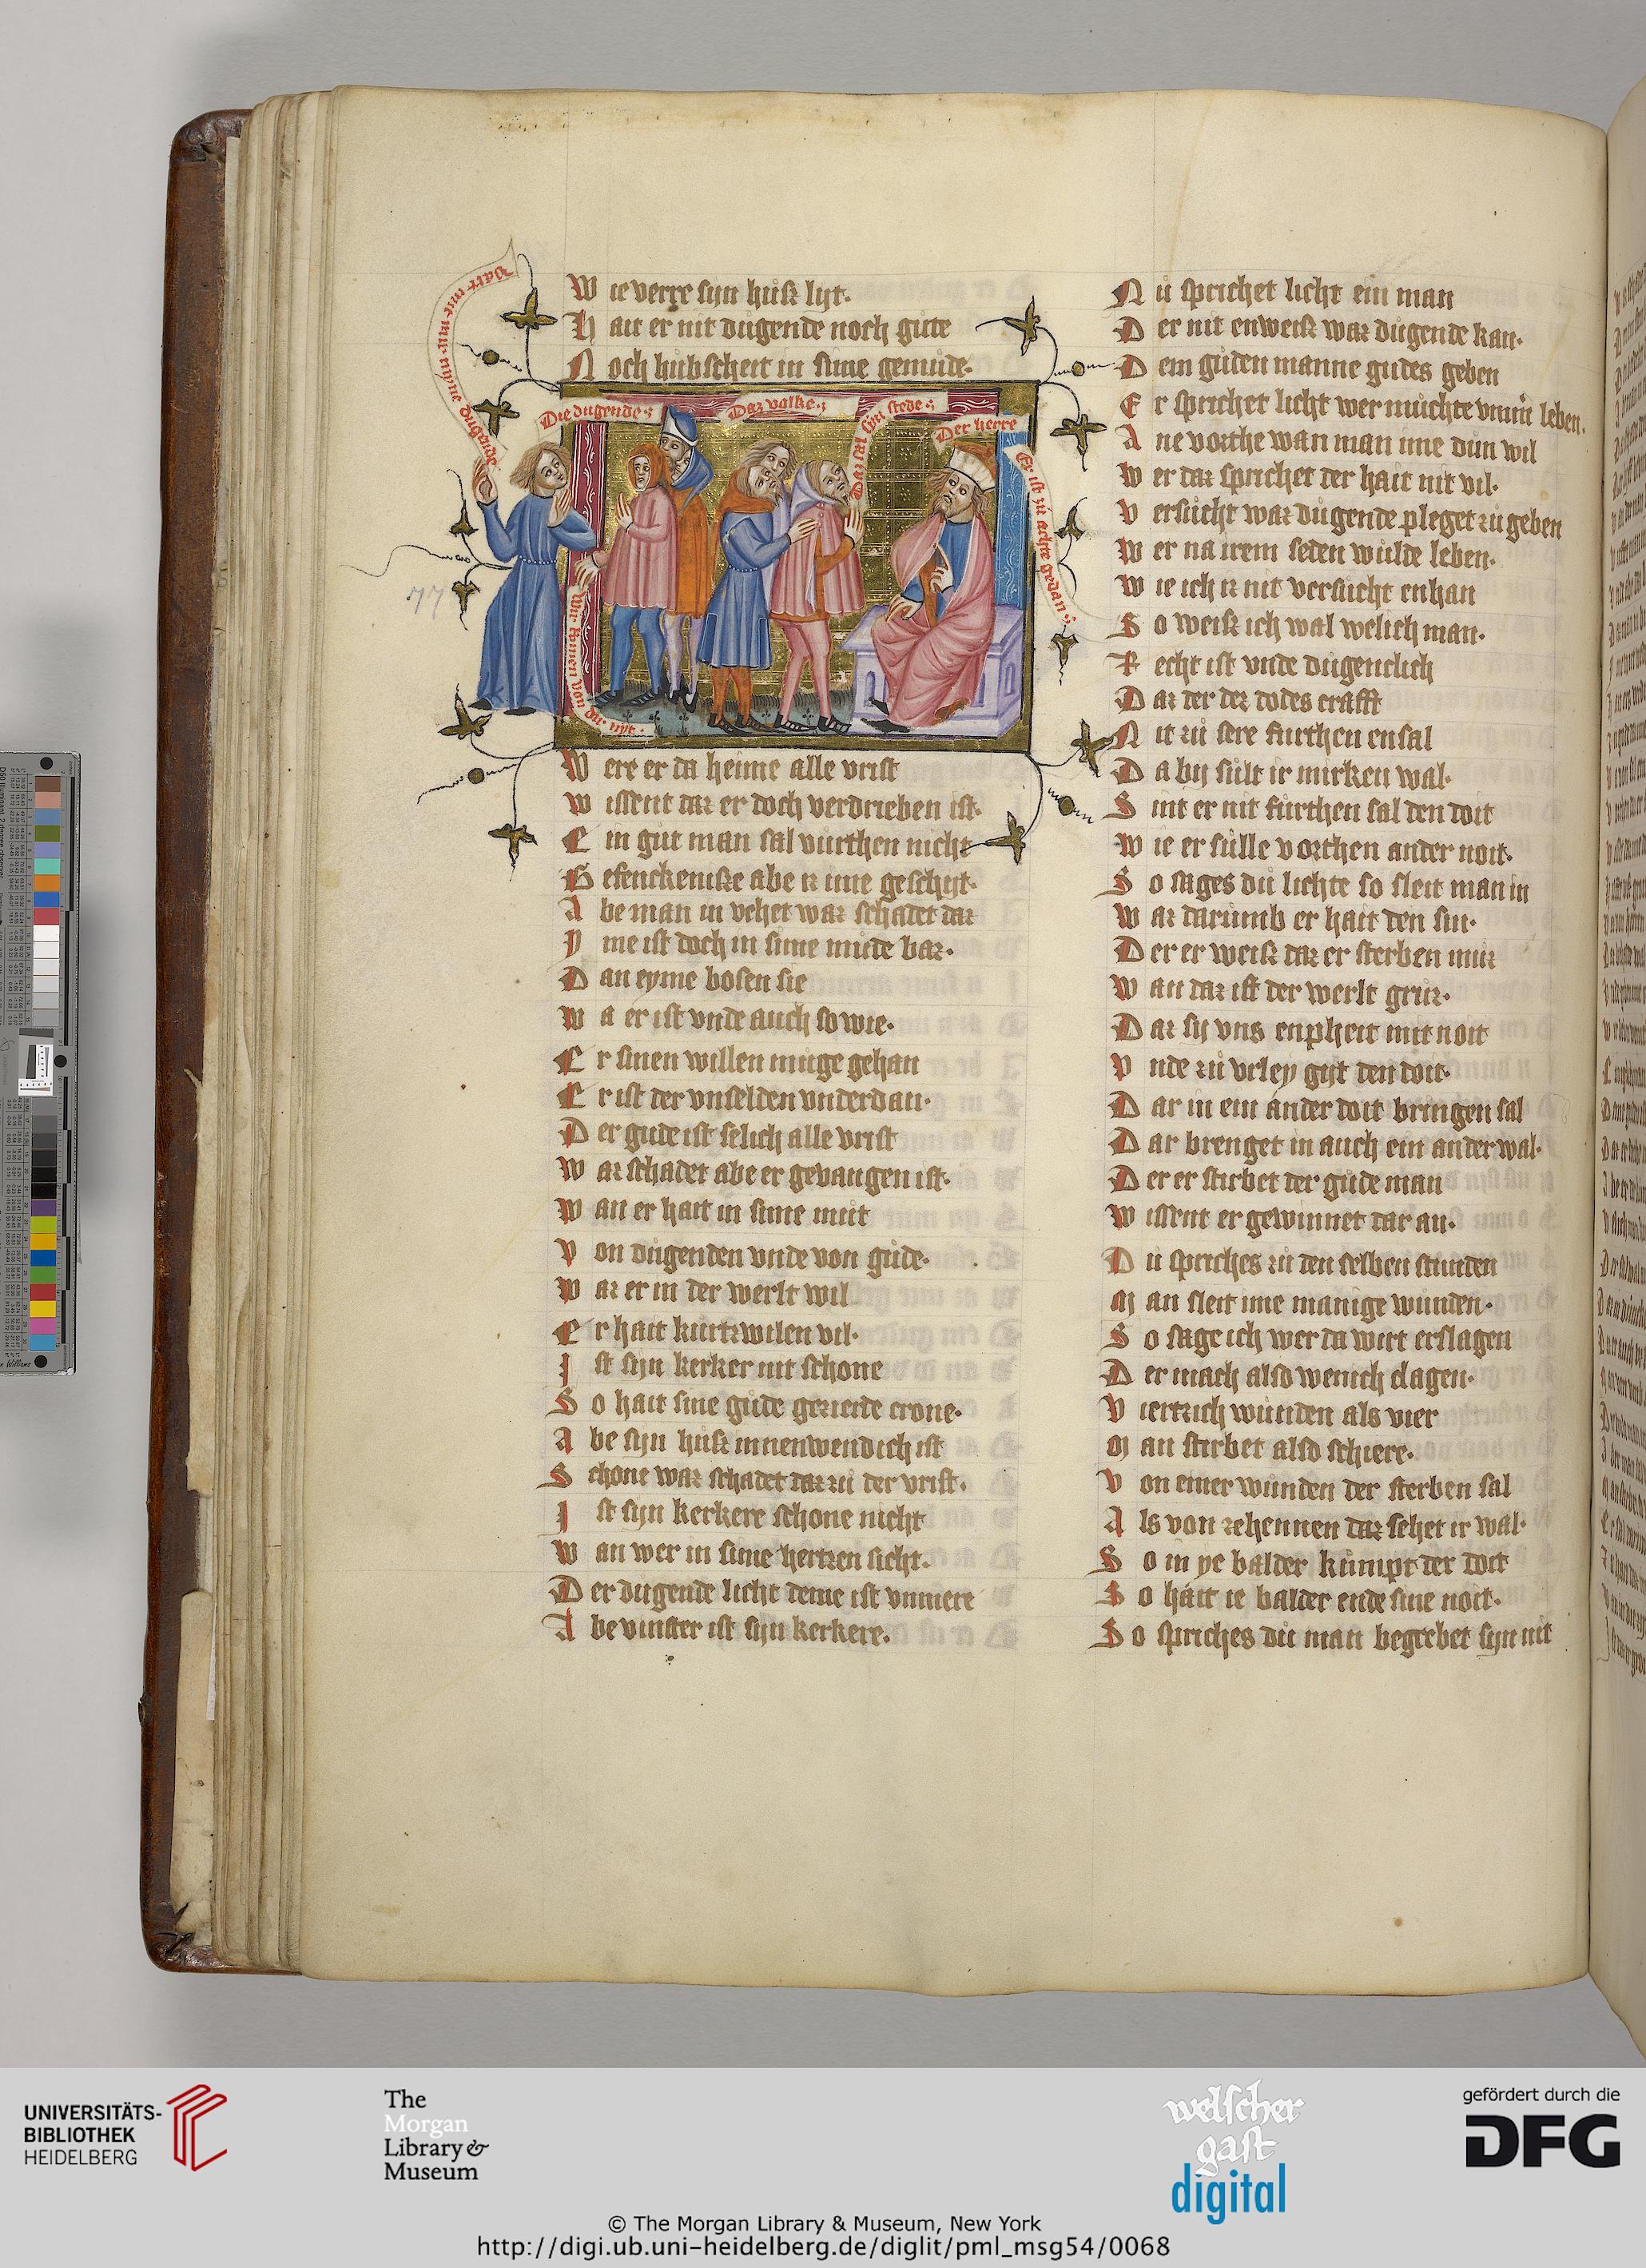 W ie verre syn huß lyt·
H ait er nit dugende noch gute
N och hubscheit in sime gemude·
Vart mit mir, myne dugende
Die dugende
Daz volke
Daz sal syn stede
Der herre
Er ist zu achte gedan
Wir kumen von dir nyt·
77
W ere er da heime alle vrist
W issent daz er doch verdrieben ist·
E in gut man sal vurthen nicht
G efenckeniße abe iz ime geschyt·
A be man in vehet waz schadet daz
I me ist doch in sime mude baz·
D an eyme bosen sie
W a er ist vnde auch so wie·
E r sinen willen muge gehan
E r ist der vnselden vnderdan·
D er gude ist selich alle vrist
W az schadet abe er gevangen ist·
W an er hait in sime mut
V on dugenden vnde von gude·
W az er in der werlt wil
E r hait kurtzwilen vil·
I st syn kerker nit schone
S o hait sine gude gezierde crone·
A be syn huß innenwendich ist
S chone waz schadet daz zu der vrist·
I st syn kerkere schone nicht
W an wer in sime hertzen sicht·
D er dugende licht deme ist vnmere
A be vinster ist syn kerkere·
N u sprichet licht ein man
D er nit enweiß waz dugende kan·
D em guden manne gudes geben
E r sprichet licht wer muchte vmm leben·
A ne vorthe wan man ime dun wil
W er daz sprichet der hait nit vil·
V ersucht waz dugende pleget zu geben
W er na irem seden wulde leben·
W ie ich iz nit versucht enhan
S o weiß ich wal welich man·
R echt ist vnde dugentlich
D az der dez dodes crafft
N it zu sere furthen ensal
D a by sult ir mirken wal·
S int er nit furthen sal den doit
W ie er sulle vorthen ander noit·
S o sages du lichte so sleit man in
W az darumb er hait den sin·
D er er weiß daz er sterben muz
W an daz ist der werlt gruz·
D az sy vns enpheit mit noit
V nde zu vrley gyt den doit·
D ar in ein ander doit bringen sal
D ar brenget in auch ein ander wal·
D er er stirbet der gude man
W issent er gewinnet dar an·
D u spriches zu den selben stunden
M an sleit ime manige wunden·
S o sage ich wer da wirt erslagen
D er mach also wenich clagen·
V iertzich wunden als vier
M an stirbet also schiere·
V on einer wunden der sterben sal
A ls von zehennen daz sehet ir wal·
S o in ye balder kumpt der doit
S o hait ie balder ende sine noit·
S o spriches du man begrebet syn nit
UNIVERSITÄTS-
BIBLIOTHEK
HEIDELBERG
The
Morgan
Library &
Museum
welscher
gast
digital
gefördert durch die
DFG
© The Morgan Library & Museum, New York
http://digi.ub.uni-heidelberg.de/diglit/pml_msg54/0068